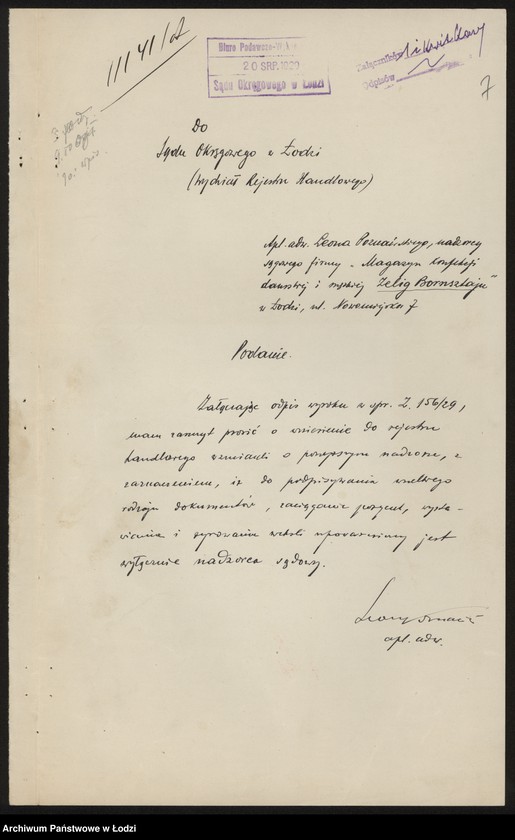 11141/A
Biuro Podawcze
20 SRP. 1929
Sądu Okręgowego w Łodzi
Załączników
Odpisów
7
Do
Sądu Okręgowego w Łodzi
(Wydział Rejestru Handlowego)
Apl. adw. Leona Poznańskiego, nadzorcy
sądowego firmy „Magazyn konfekcji
damskiej i męskiej Zelig Bornsztajn”
w Łodzi, ul. Nowomiejska 7
Podanie.
Załączając odpis wyroku w spr. Z. 156/29,
mam zaszczyt prosić o wniesienie do rejestru
handlowego wzmianki o powyższym nadzorze, z
zaznaczeniem, iż do podpisywania wszelkiego
rodzaju dokumentów, zaciągania pożyczek, wysta-
wiania i żyrowania weksli upoważniony jest
wyłącznie nadzorca sądowy.
apl. adw.
Archiwum Państwowe w Łodzi